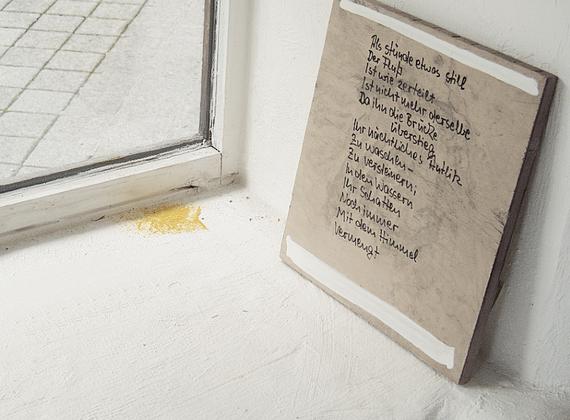 Als stünde etwas still
Der Fluß
Ist wie zerteilt
Ist nicht mehr derselbe
Da ihn die Brücke
überstieg
Ihr nächtliches Antlitz
Zu waschen –
Zu versteinern;
In den Wassern
Ihr Schatten
Noch immer
Mit dem Himmel
Vermengt